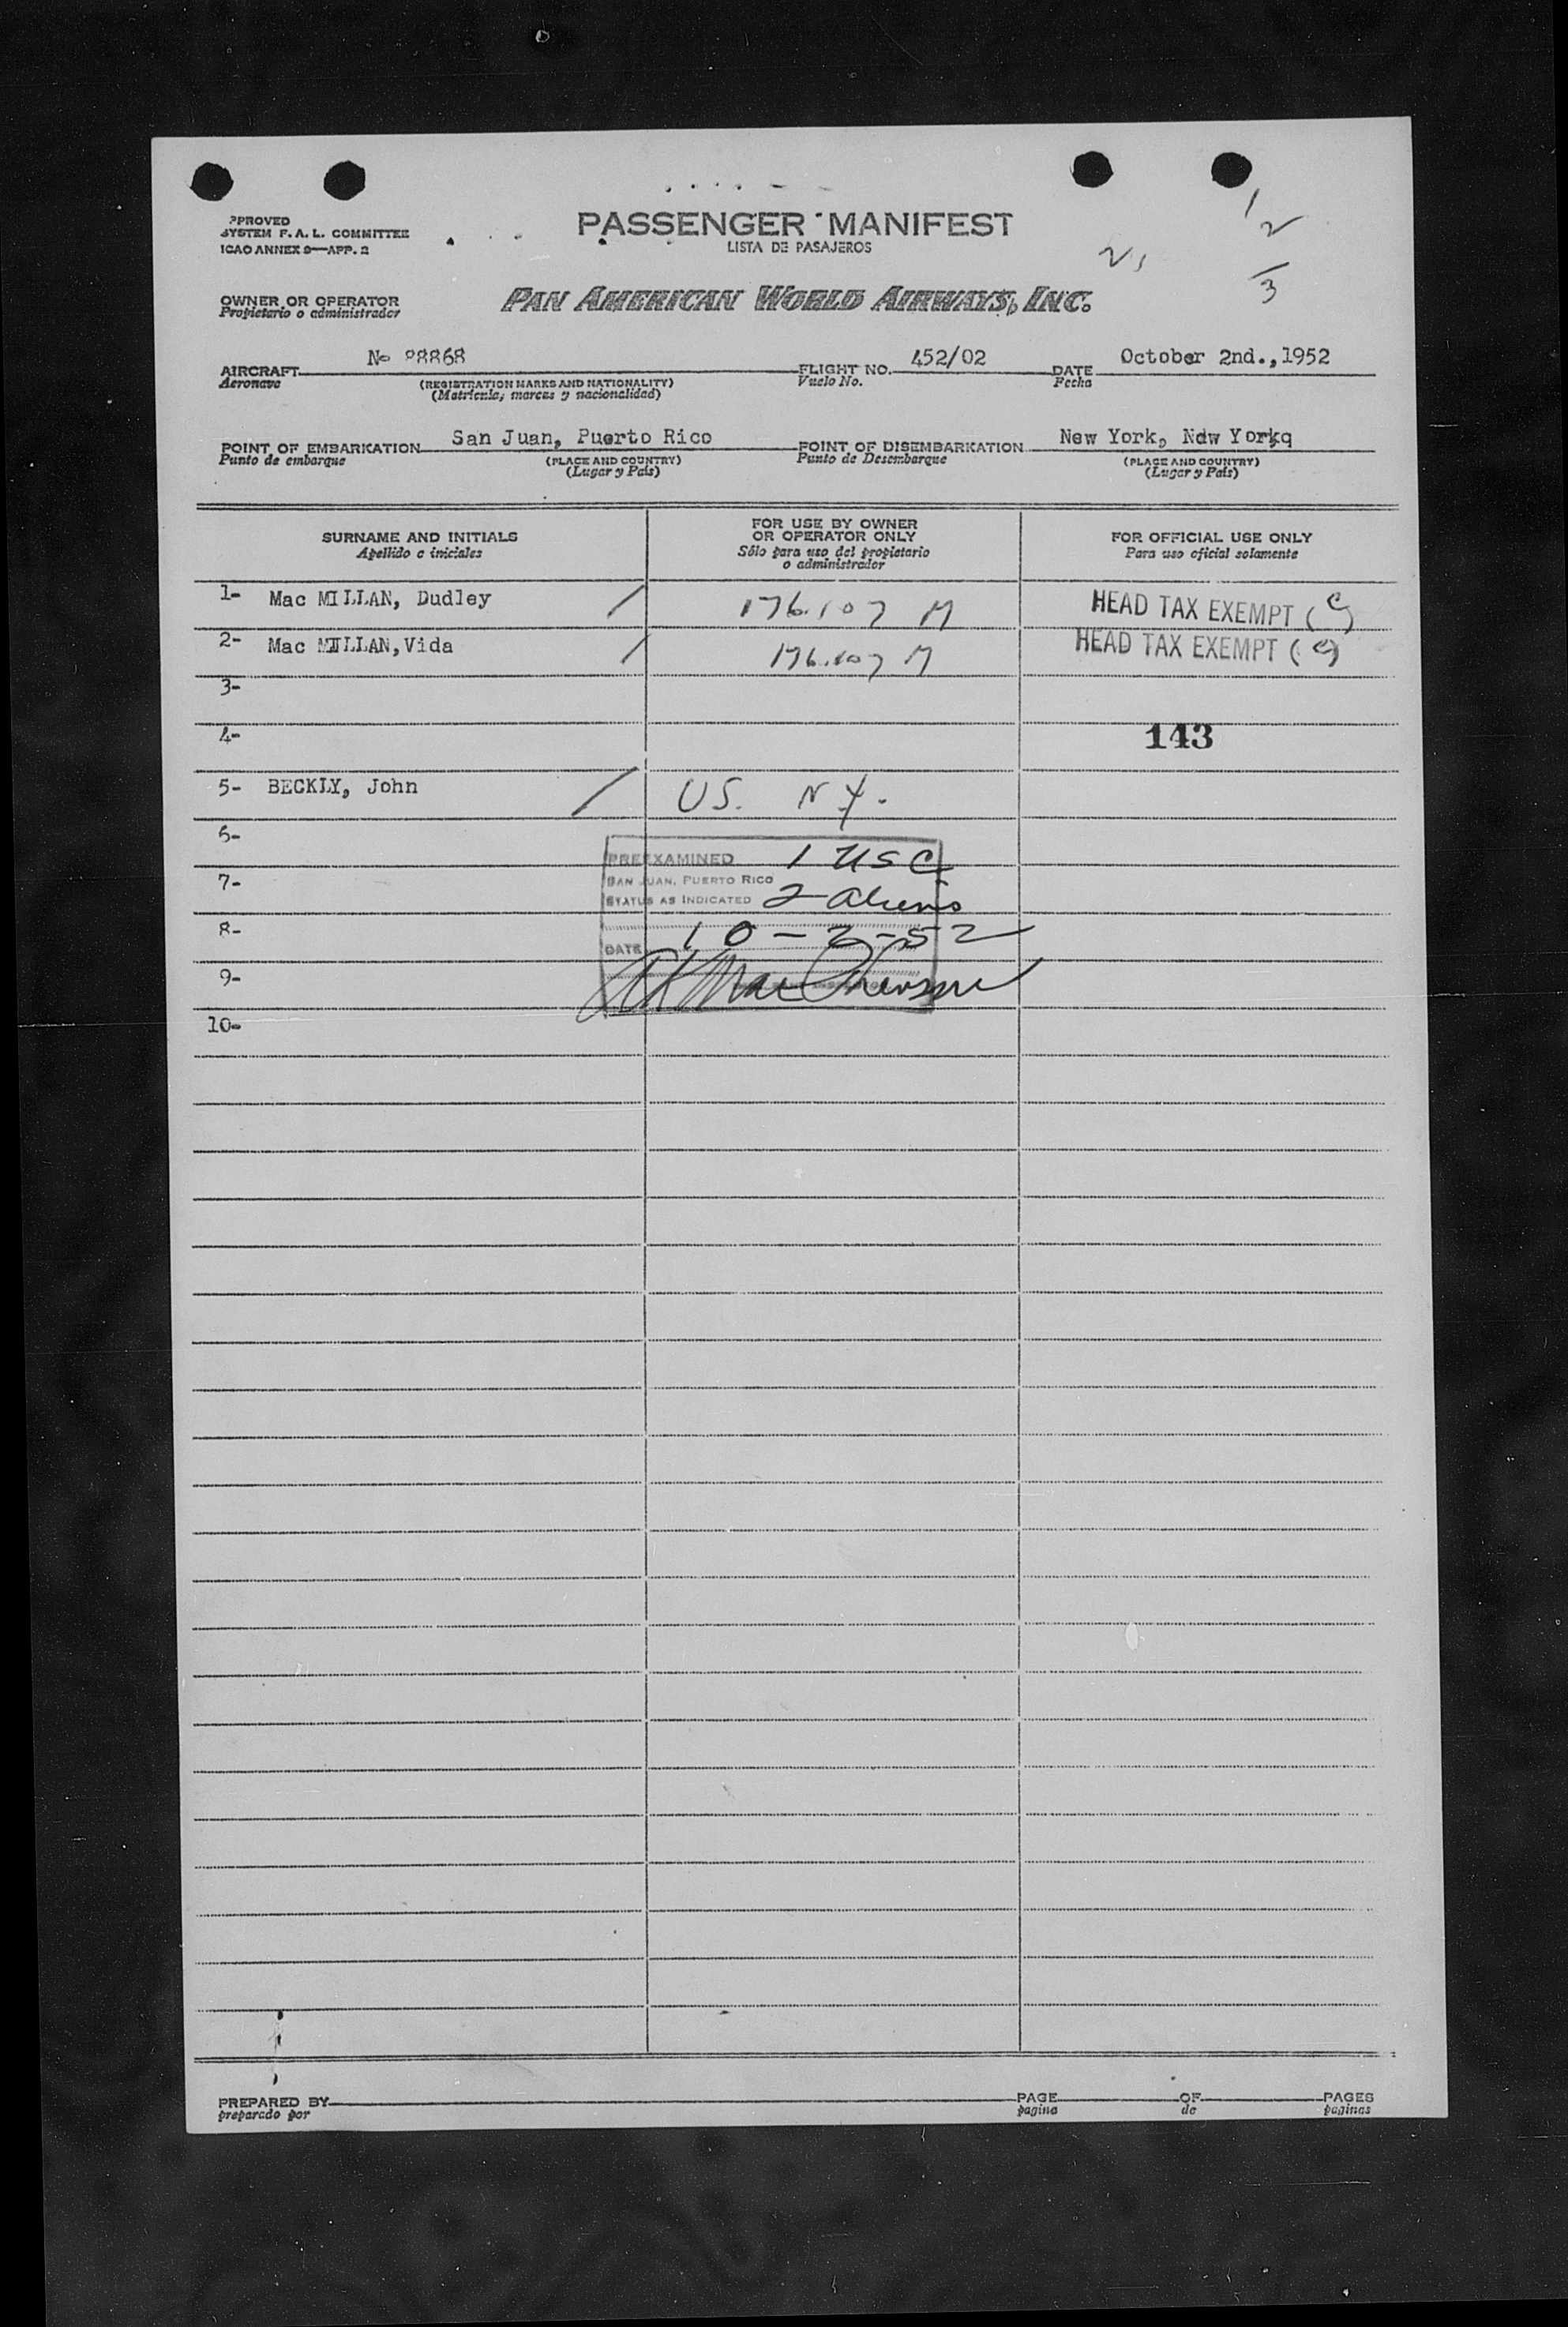 PPROVED
SYSTEM F. A. L. COMMITTEE
ICAO ANNEX 9—APP. 2
PASSENGER MANIFEST
LISTA DE PASAJEROS
1
2
2,
3
OWNER OR OPERATOR
Propietario o administrador
PAN AMERICAN WORLD AIRWAYS, INC.
AIRCRAFT No 88868 FLIGHT NO. 452/02 DATE October 2nd.,1952
Aeronave (REGISTRATION MARKS AND NATIONALITY) Vuelo No. Fecha
(Matricula, marcas y nacionalidad)
POINT OF EMBARKATION San Juan, Puerto Rico POINT OF DISEMBARKATION New York, Ndw Yorkq
Punto de embarque (PLACE AND COUNTRY) Punto de Desembarque (PLACE AND COUNTRY)
(Lugar y País) (Lugar y País)
SURNAME AND INITIALS
Apellido e iniciales
FOR USE BY OWNER
OR OPERATOR ONLY
Sólo para uso del propietario
o administrador
FOR OFFICIAL USE ONLY
Para uso oficial solamente
1- Mac MILLAN, Dudley / 176.107 M HEAD TAX EXEMPT (C)
2- Mac MILLAN,Vida / 176.107 M HEAD TAX EXEMPT (C)
3-
4- 143
5- BECKLY, John / US. N.Y.
6-
PREEXAMINED 1 USC
7-
SAN JUAN, PUERTO RICO
STATUS AS INDICATED 2 aliens
8-
DATE 10-2-52
9-
10-
PREPARED BY PAGE OF PAGES
preparado por pagina de paginas